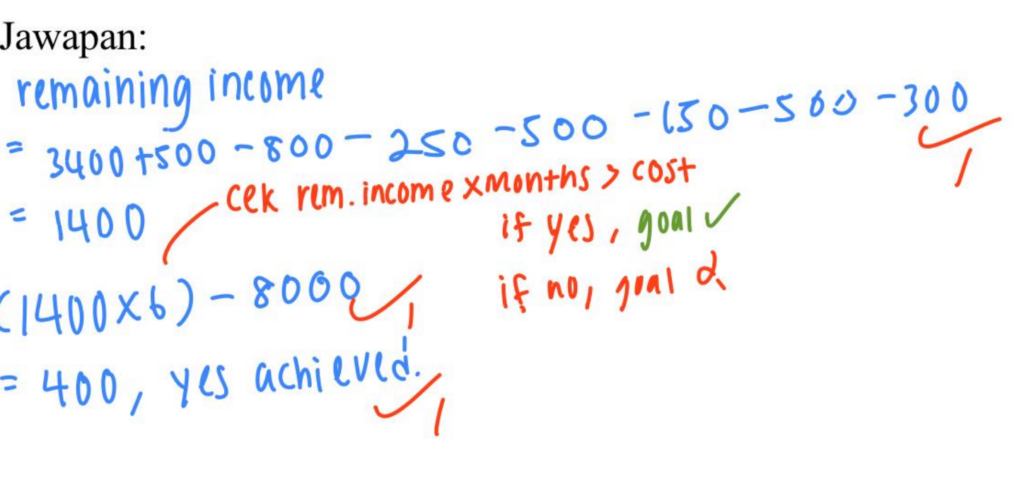 Jawapan:
remaining income
= 3400+500 -800 - 250 -500 -150-500 -300
1
cek rem. income x months > cost
= 1400
if yes, goal ✓
(1400x6) - 8000
1
if no, goal
= 400, yes achieved.
1